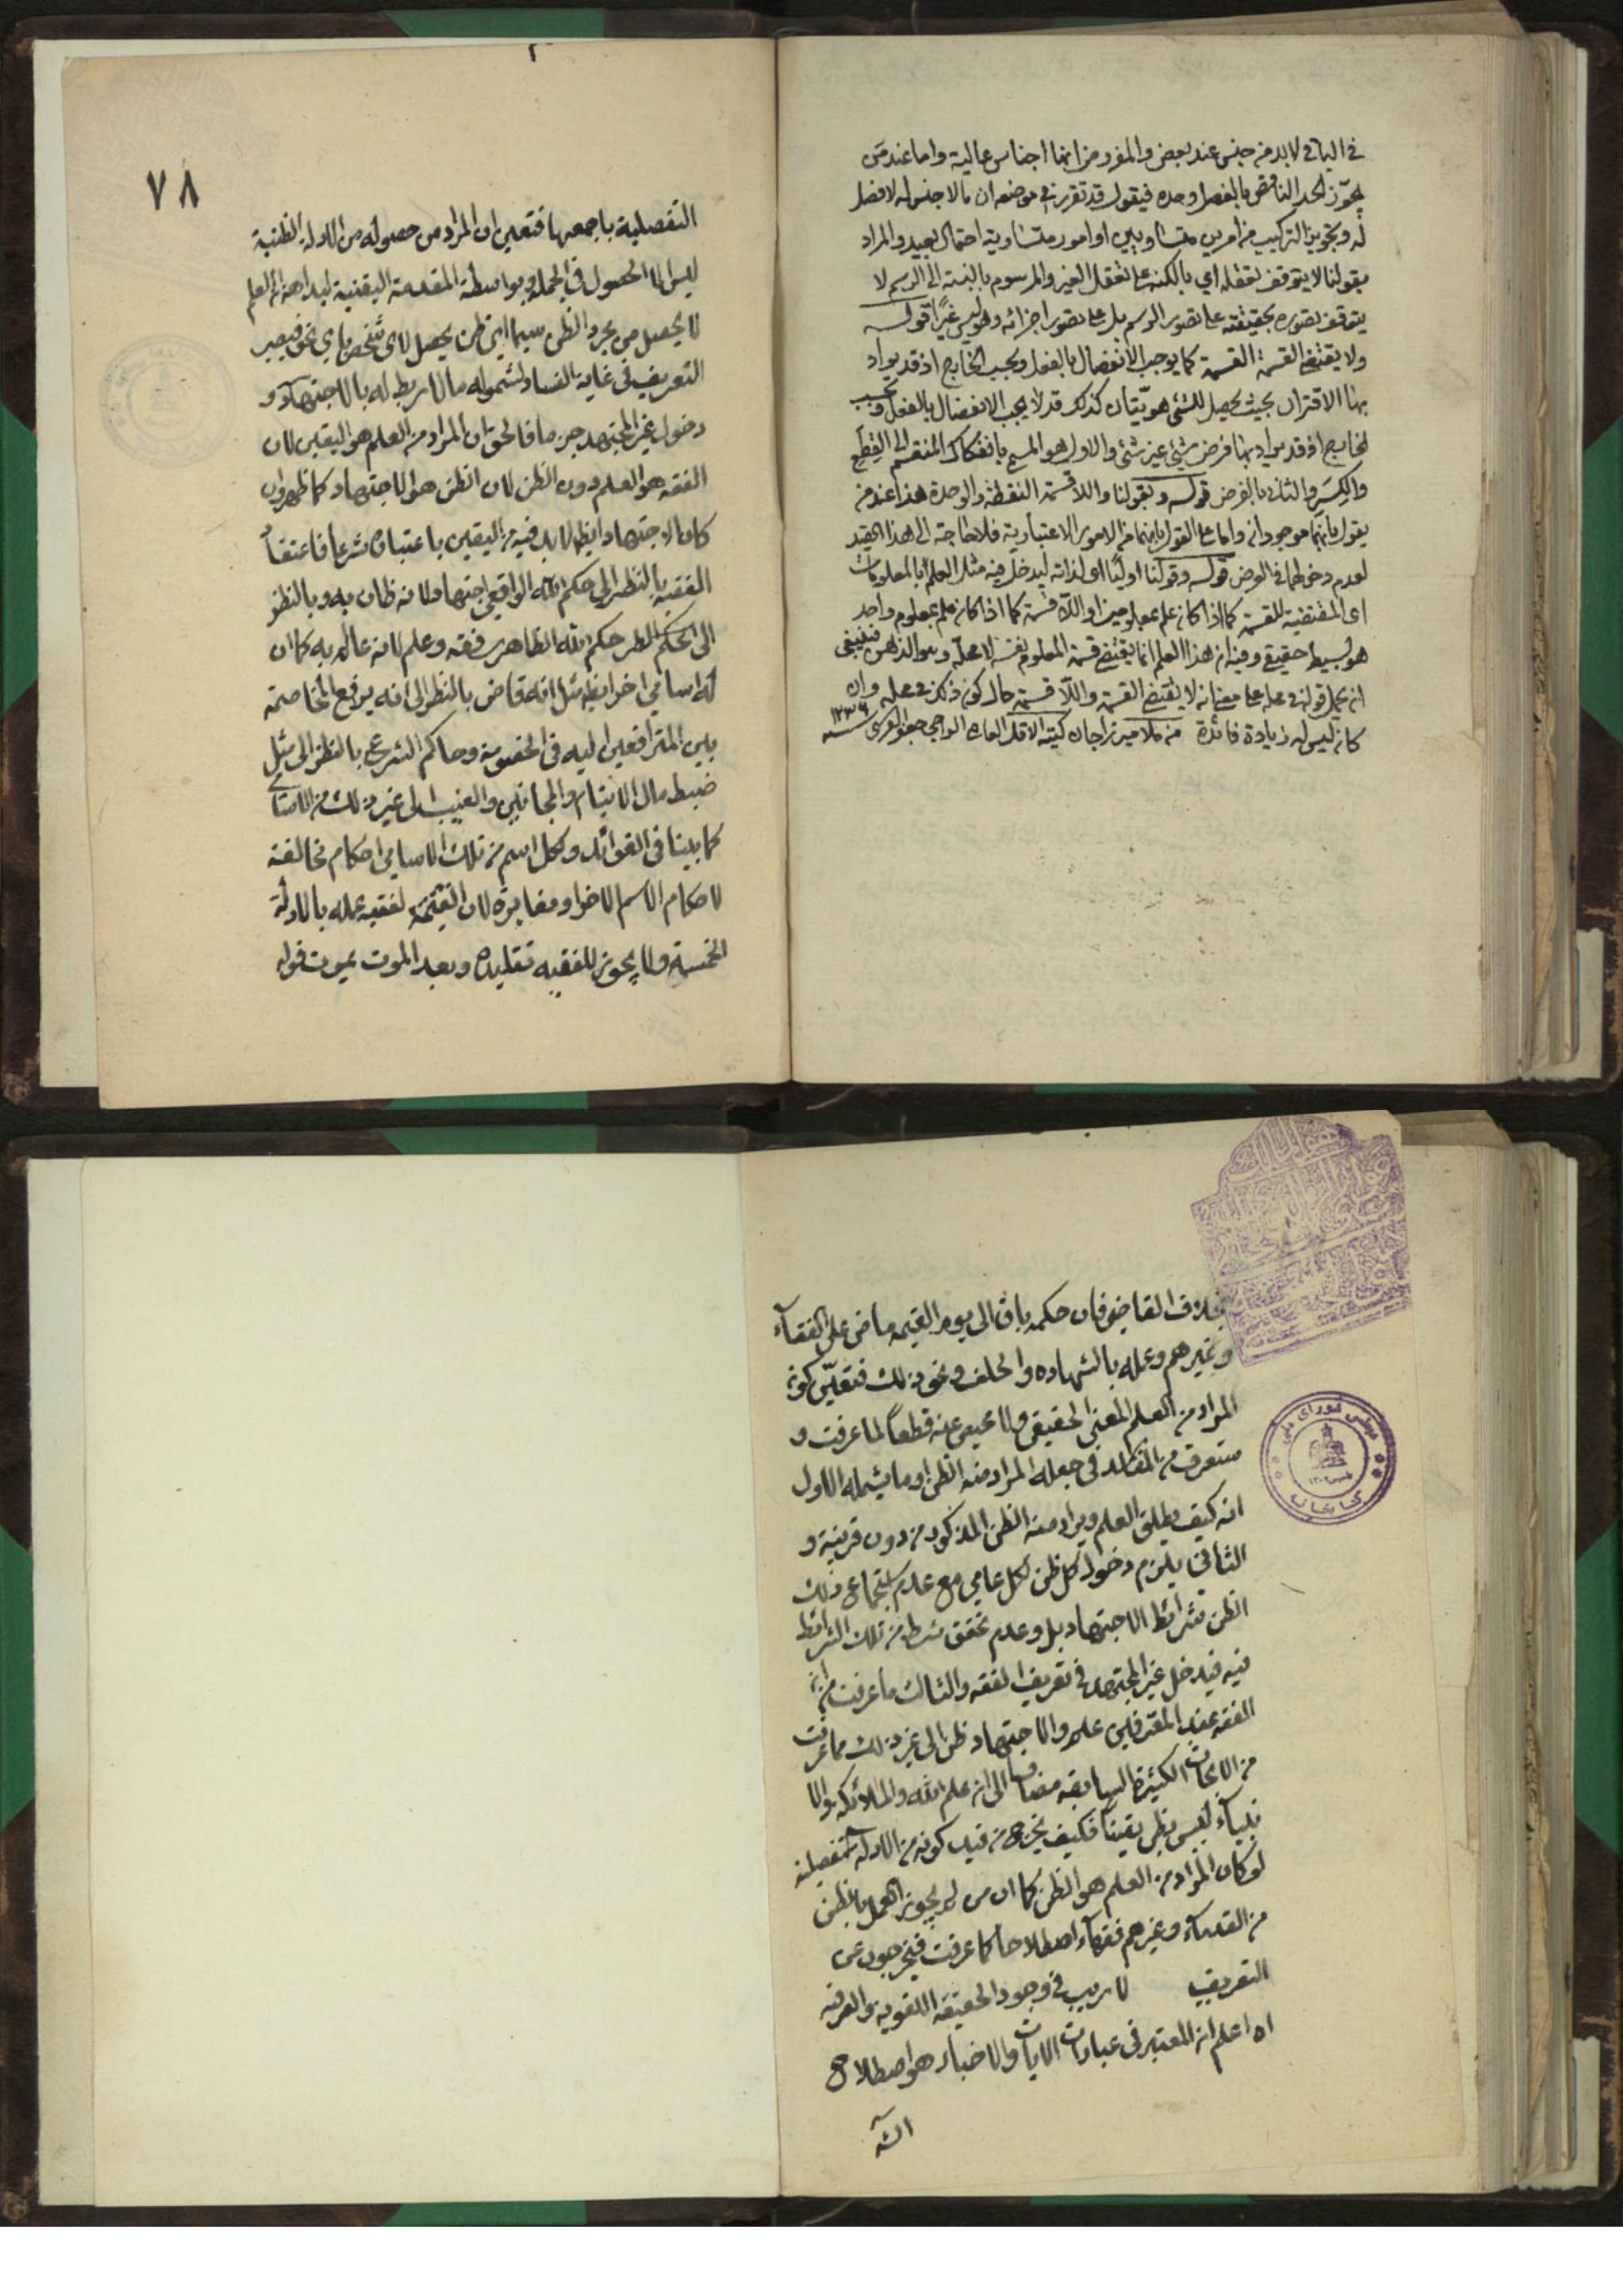 في الباقي لا بد من جنس عند بعض والمفروض انها اجناس عالية واما عند من
يجوّز الحد الناقص بالفصل وحده فيقول قد تقرر في موضعه ان ما لا جنس له لا فصل
له وتجويز التركيب من امرين متساويين او امور متساوية احتمال بعيد والمراد
بقولنا لا يتوقف تعقله اي بالكنه على تعقل الغير والمرسوم بالنسبة الى الرسم لا
يتوقف تصوره بحقيقته على تصور الرسم بل على تصور اجزائه وهو ليس غيرا قوله
ولا يقتضي القسمة القسمة كما يوجب الانفصال بالفعل وبحسب الخارج اذ قد يراد
بها الاقتران بحيث يحصل للشئ هويتان كذلك قد لا يجب الانفصال بالفعل وبحسب
الخارج اذ قد يراد بها فرض شئ غير شئ والاول هو المسمى بانفكاك المنقسم الى القطع
والكسر والثاني بالفرض قوله وبقولنا واللا قسمة النقطة والوحدة هذا عند من
يقول بانهما موجودان واما على القول بانهما من الامور الاعتبارية فلا حاجة الى هذا القيد
لعدم دخولهما في العرض قوله وقولنا اوليا اي لذاته ليدخل فيه مثل العلم بالمعلومات
اي المقتضية للقسمة كما اذا كان علم بمعلومين او اللا قسمة كما اذا كان علم بمعلوم واحد
هو بسيط حقيقي وفيه ان هذا العلم انما يقتضي قسمة المعلوم نفسه لا محله وهو الذهن فينبغي
ان يحمل قوله في محله على معنى انه لا يقتضي القسمة واللا قسمة حال كونه ذلك في محله وان
كان ليس له زيادة فائدة من ملا ميرزا جان كتبه الاقل العبد الراجي جعفر سنة ١٢٣٦
٧٨
التفصلية باجمعها فتعين ان المراد من حصوله من الادلة الظنية
ليس الا الحصول في الجملة وبواسطة المقدمة اليقنية لبداهة ان العلم
لا يحصل من مجرد الظن سيما اي ظن يحصل لاي شخص باي نحو فيصير
التعريف في غاية الفساد لشموله ما لا ربط له بالاجتهاد و
دخول غير المجتهد جزما فالحق ان المراد من العلم هو اليقين لان
الفقه هو العلم دون الظن لان الظن هو الاجتهاد كما ظهر وان
كان الاجتهاد ايضا لا بد فيه من اليقين باعتباره شرعا فاعتقاد
الفقيه بالنظر الى حكم الله الواقعي اجتهاد لانه ظان به وبالنظر
الى حكم الله الظاهري فقه وعلم لانه عالم به كما ان
له اسامي اخر ايضا مثل انه قاض بالنظر الى انه يرفع المخاصمة
بين المترافعين اليه في الخصومة وحاكم الشرع بالنظر الى مثل
ضبط مال الايتام والمجانين والغيب الى غير ذلك من الاسامي
كما بينا في الفوائد ولكل اسم من تلك الاسامي احكام مخالفة
لاحكام الاسم الاخر او مغايرة لان الفقيه لفقيه عمله بالادلة
الخمسة ولا يجوز للفقيه تقليده وبعد الموت يموت قوله
بخلاف القاضي فان حكمه باق الى يوم القيمة ماض على الفقهاء
وغيرهم وعمله بالشهادة والحلف ونحو ذلك فتعين كون
المراد من العلم المعنى الحقيقي ولا محيص عنه قطعا لما عرفت و
ستعرف من المفاسد في جعله المراد منه الظن او ما يشمله الاول
انه كيف يطلق العلم ويراد منه الظن المذكور من دون قرينة و
الثاني يلزم دخول كل ظن لكل عامي مع عدم استجماع ذلك
الظن شرائط الاجتهاد بل وعدم تحقق شرط من تلك الشرائط
فيه فيدخل غير المجتهد في تعريف الفقه والثالث ما عرفت من ان
الفقه عند المعترفين علم والاجتهاد ظن الى غير ذلك مما عرفت
من الابحاث الكثيرة السابقة مضافا الى ان علم الله والملائكة والا
نبياء ليس بظن يقينا فكيف يخرج من قيد كونه من الادلة التفصيلية
لو كان المراد من العلم هو الظن كما ان من لم يجوز العمل بالظن
من القدماء وغيرهم فقهاء اصطلاحا كما عرفت فيخرجون عن
التعريف لا ريب في وجود الحقيقة اللغوية والعرفية
اه اعلم ان المعتبر في عبارات الايات والاخبار هو اصطلاح
مجلس شورای ملی
کتابخانه